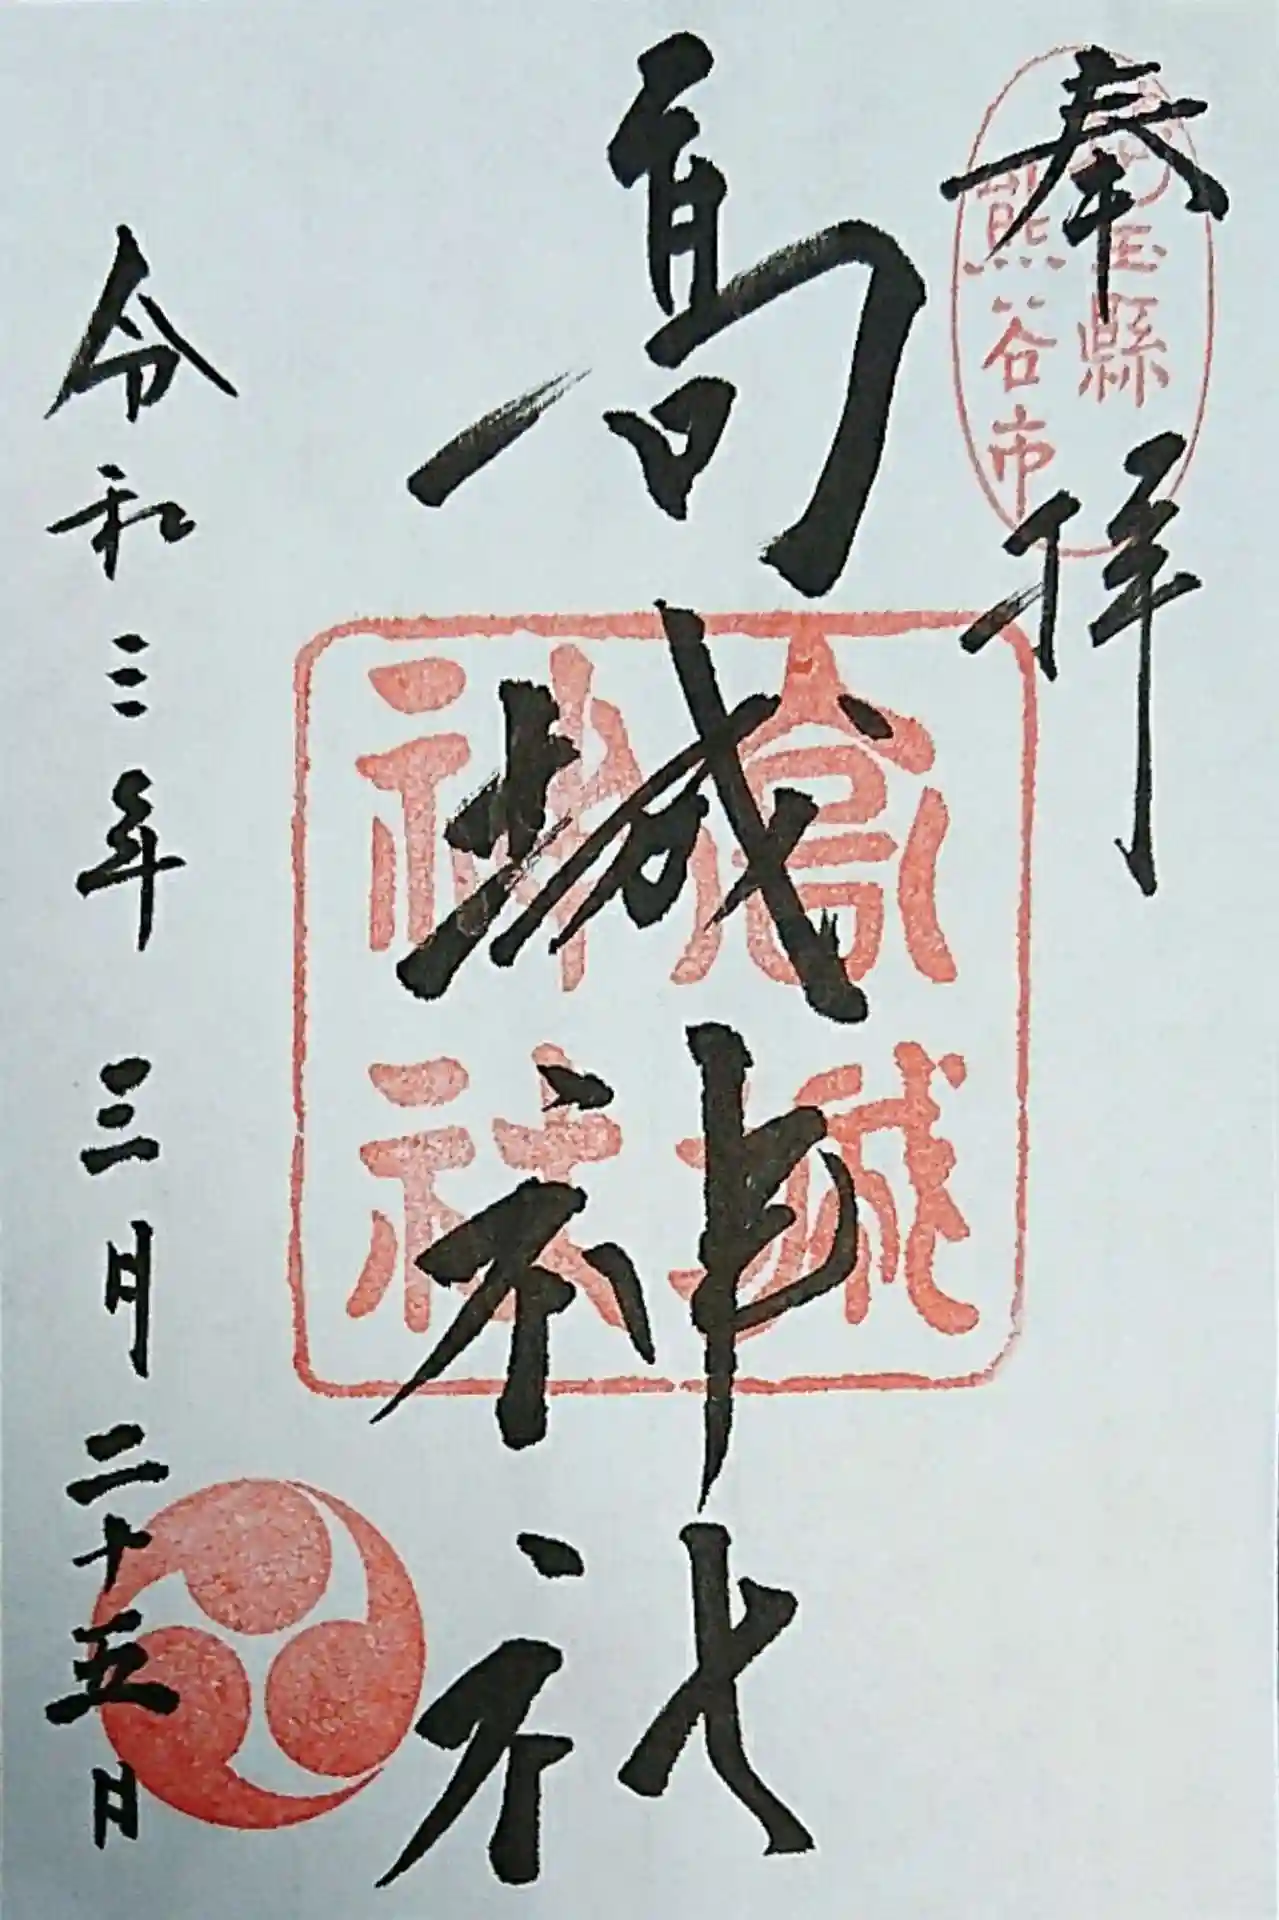 奉拝
埼玉縣
熊谷市
高城神社
高城
神社
令和三年 三月 二十五日